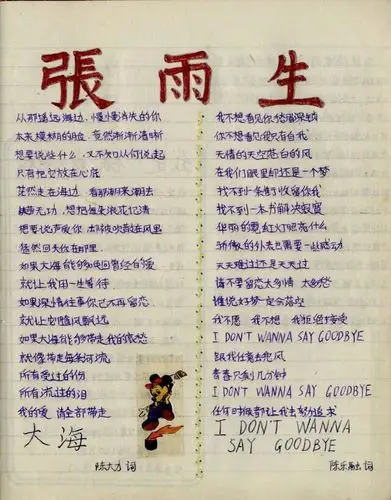 張雨生
从那遥远海边 慢慢消失的你
本来模糊的脸 竟然渐渐清晰
想要说些什么 又不知从何说起
只有把它放在心底
茫然走在海边 看那潮来潮去
徒劳无功 想把每朵浪花记清
想要说声爱你 却被吹散在风里
猛然回头你在那里
如果大海能够唤回曾经的爱
就让我用一生等待
如果深情往事你已不再留恋
就让它随风飘远
如果大海能够带走我的哀愁
就像带走每条河流
所有受过的伤
所有流过的泪
我的爱 请全部带走
大海
陈大力 词
我不想看见你绪眉深锁
你不想看见我只有自我
无情的天空苍白的风
在我们眼里却还是一个梦
找不到一条街收留你我
找不到一本书解决寂寞
华丽的霓虹灯照亮什么
骄傲的外表也需要一些感动
天天难过还是天天过
请不要留恋太多情 太多愁
谁说好梦一定会落空
我不愿 我不想 我拒绝接受
I DON'T WANNA SAY GOODBYE
跟我任意去兜风
青春只剩几分钟
I DON'T WANNA SAY GOODBYE
任何时候都让我去努力追求
I DON'T WANNA
SAY GOODBYE
陈乐融 词